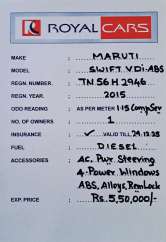 ROYAL CARS
MAKE : MARUTI
MODEL : SWIFT VDi-ABS
REGN. NUMBER : TN 56 H 2946
REGN. YEAR : 2015
ODO READING : AS PER METER 1.15 Comp Serv
NO. OF OWNERS : 1
INSURANCE : ✓ VALID TILL
FUEL : DIESEL
ACCESSORIES : Ac, Pwr Steering
4-Power Windows
ABS, Alloys, RemLock
EXP. PRICE : Rs. 5,50,000/-